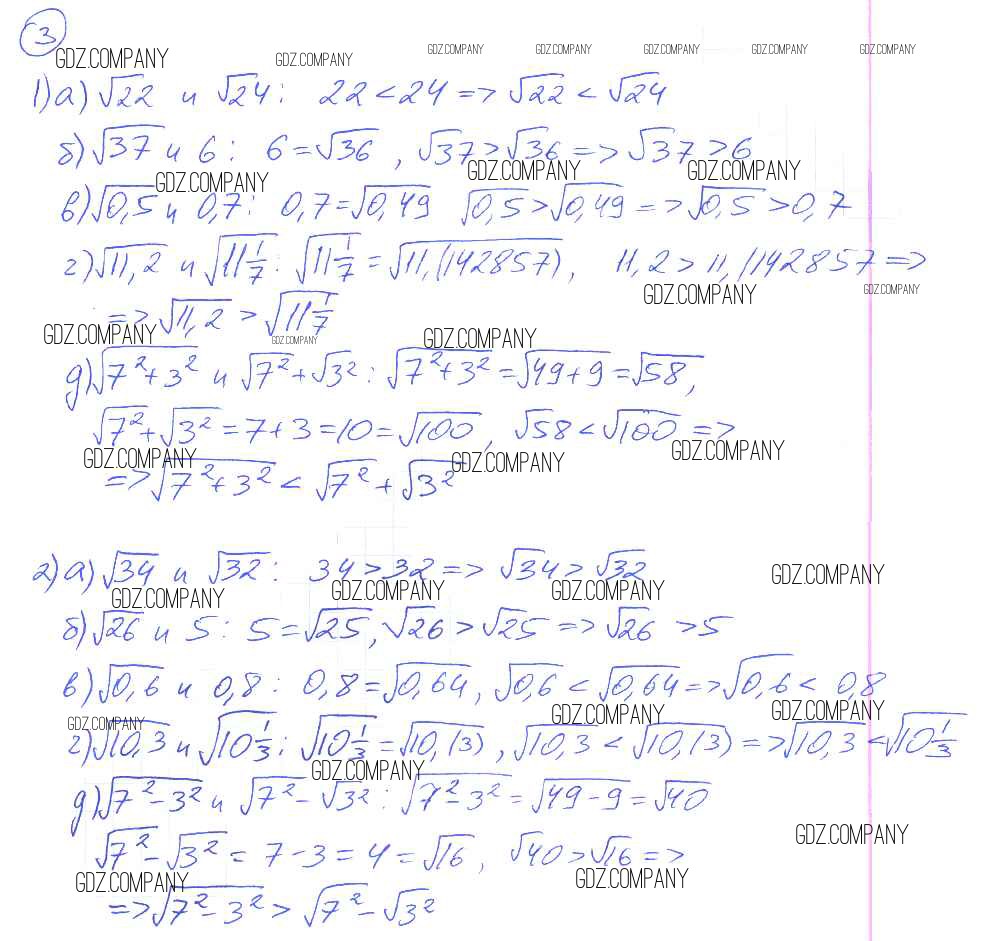 3
GDZ.COMPANY GDZ.COMPANY GDZ.COMPANY GDZ.COMPANY GDZ.COMPANY GDZ.COMPANY GDZ.COMPANY
1) а) √22 и √24 : 22 < 24 => √22 < √24
б) √37 и 6 : 6 = √36 , √37 > √36 => √37 > 6
GDZ.COMPANY GDZ.COMPANY GDZ.COMPANY
в) √0,5 и 0,7 : 0,7 = √0,49 √0,5 > √0,49 => √0,5 > 0,7
г) √11,2 и √11 1/7 : √11 1/7 = √11,(142857) , 11,2 > 11,(142857 =>
GDZ.COMPANY GDZ.COMPANY
=> √11,2 > √11 1/7
GDZ.COMPANY GDZ.COMPANY GDZ.COMPANY
д) √7²+3² и √7² + √3² : √7²+3² = √49+9 = √58 ,
√7² + √3² = 7+3 = 10 = √100 , √58 < √100 =>
GDZ.COMPANY GDZ.COMPANY GDZ.COMPANY
=> √7²+3² < √7² + √3²
2) а) √34 и √32 : 34 > 32 => √34 > √32
GDZ.COMPANY GDZ.COMPANY GDZ.COMPANY GDZ.COMPANY
б) √26 и 5 : 5 = √25 , √26 > √25 => √26 > 5
в) √0,6 и 0,8 : 0,8 = √0,64 , √0,6 < √0,64 => √0,6 < 0,8
GDZ.COMPANY GDZ.COMPANY GDZ.COMPANY
г) √10,3 и √10 1/3 : √10 1/3 = √10,(3) , √10,3 < √10,(3) => √10,3 < √10 1/3
GDZ.COMPANY
д) √7²-3² и √7² - √3² : √7²-3² = √49-9 = √40
GDZ.COMPANY
√7² - √3² = 7-3 = 4 = √16 , √40 > √16 =>
GDZ.COMPANY GDZ.COMPANY
=> √7²-3² > √7² - √3²